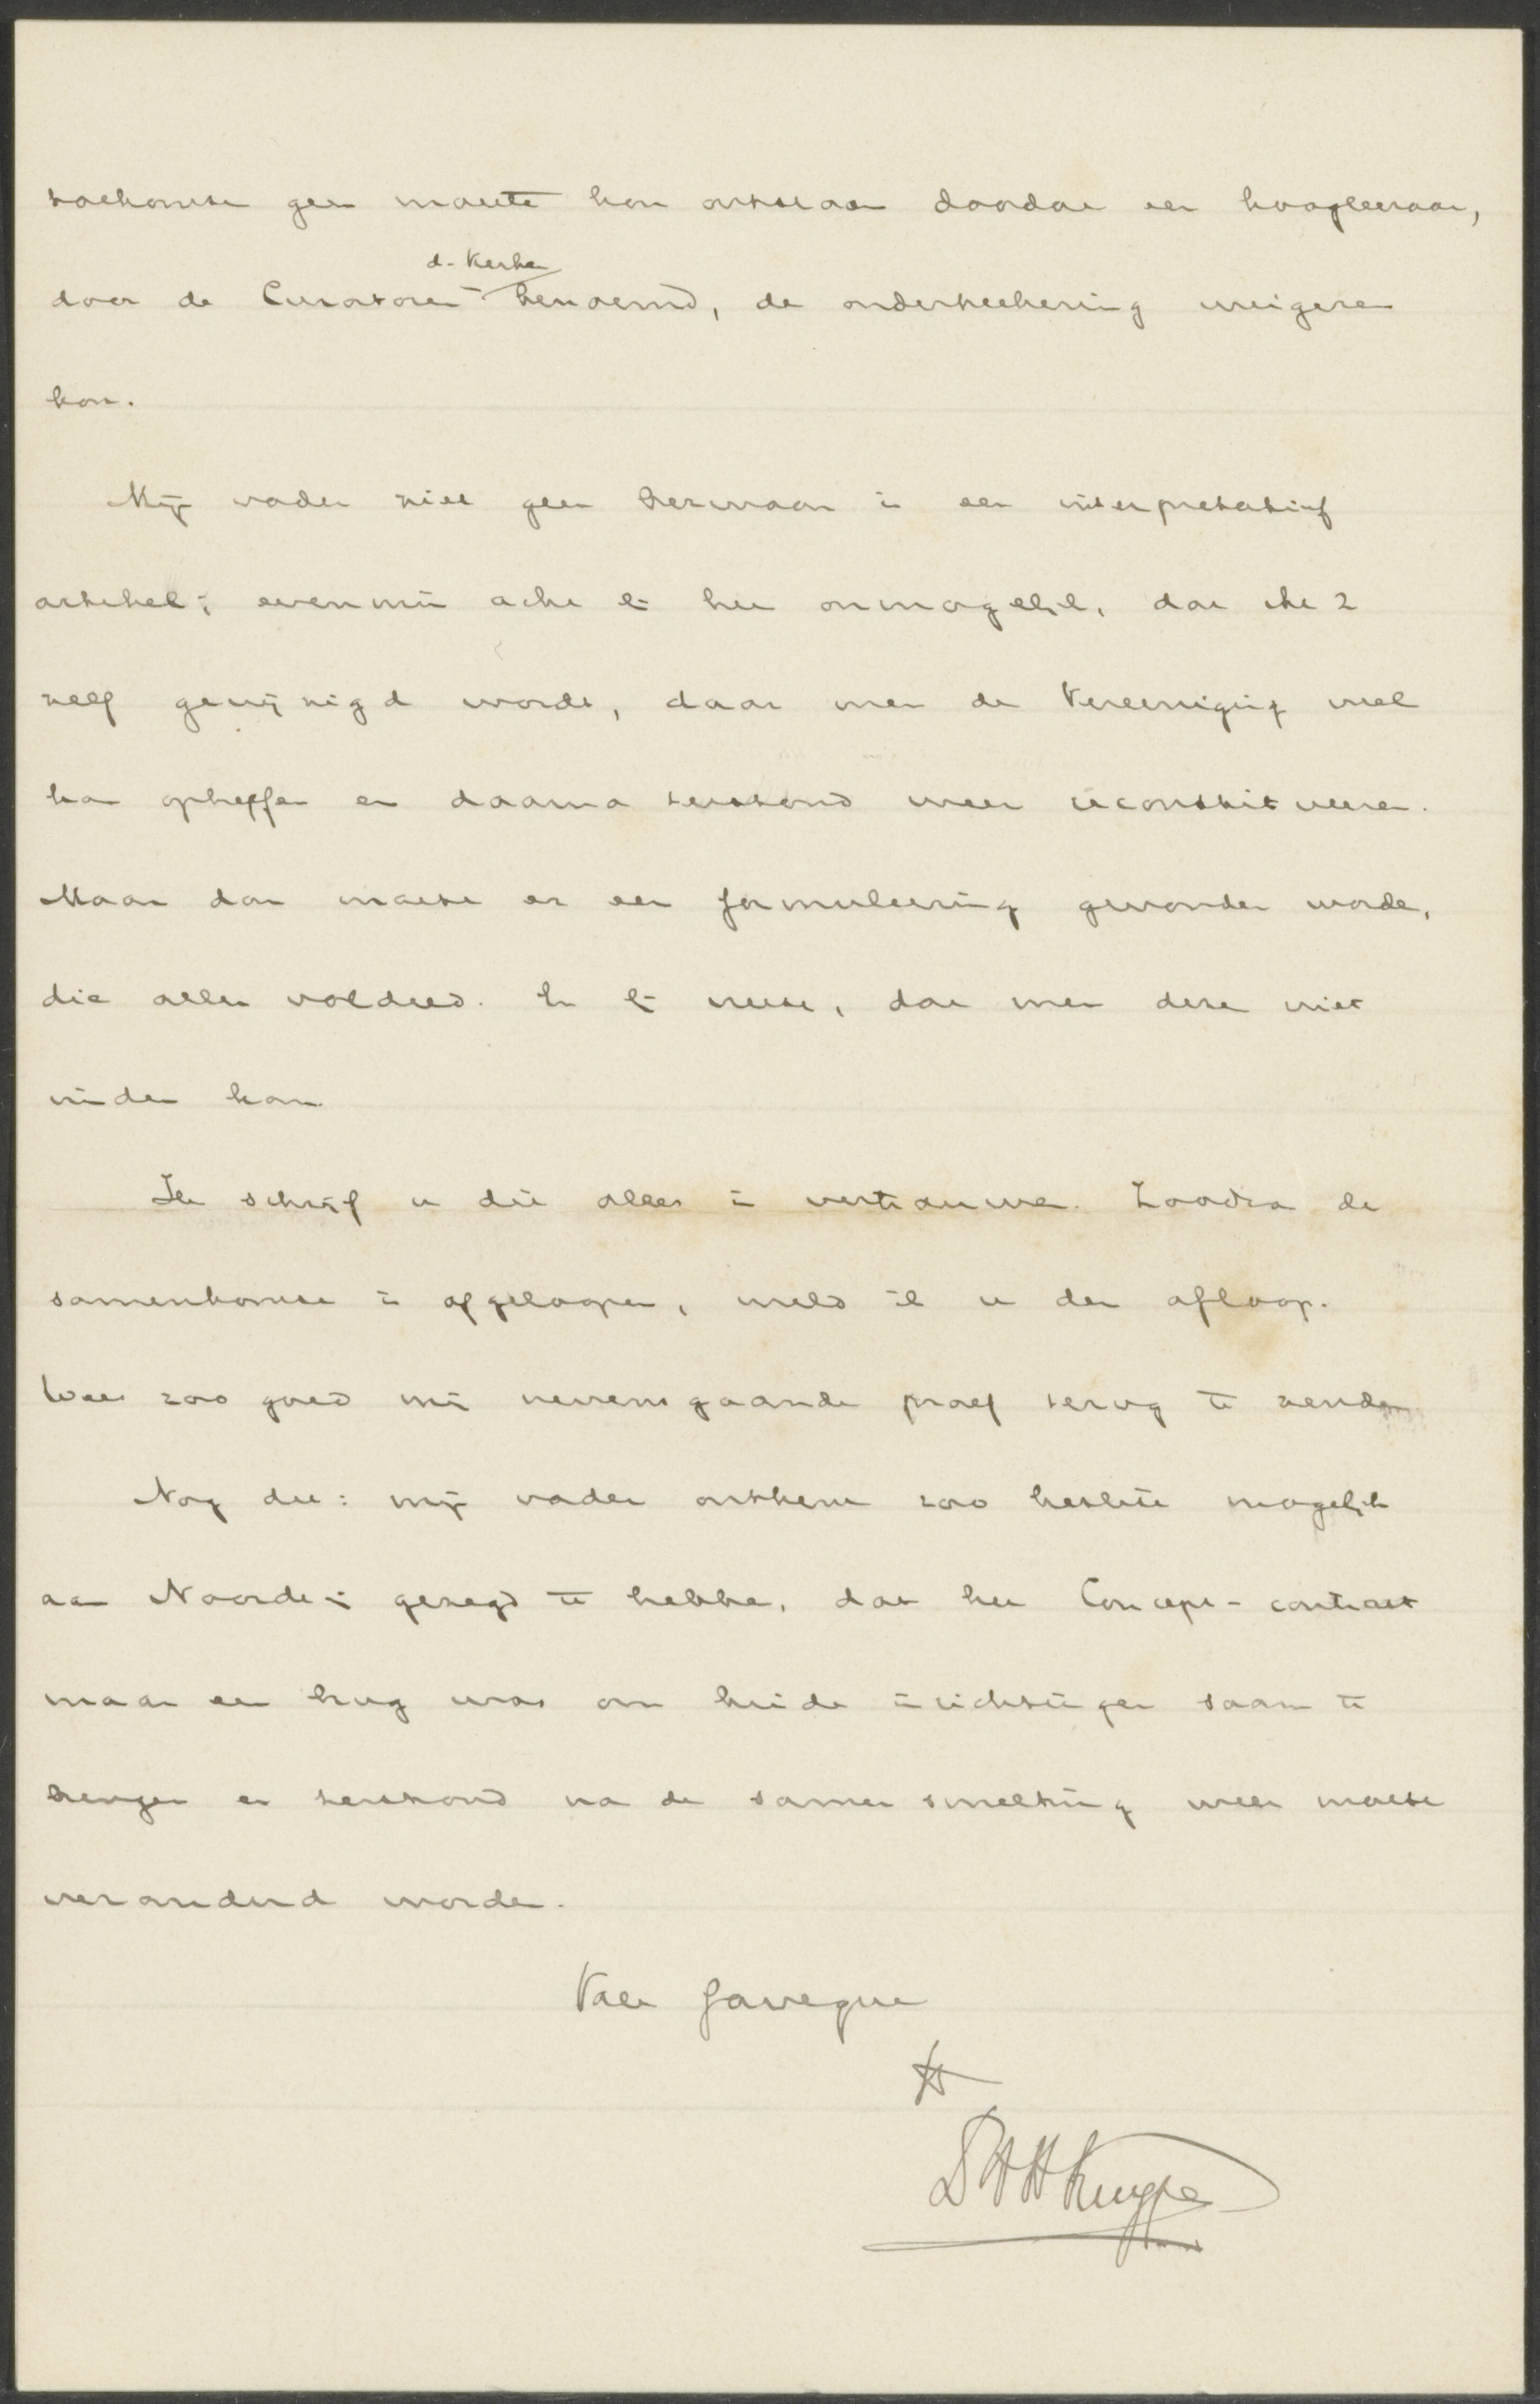 toekomst geen moeite kon ontstaan doordat een hoogleeraar,
d. Kerken
door de Curatoren benoemd, de onderteekening weigeren
kon.
Mijn vader ziet geen bezwaar in een interpretatief
artikel; evenmin acht hij het onmogelijk, dat Art 2
zelf gewijzigd wordt, daar men de Vereeniging wel
kan opheffen en daarna terstond weer reconstitueeren.
Maar dan moest er een formuleering gevonden worden,
die allen voldeed. En hij vreest, dat men deze niet
vinden kan.
Ik schrijf u dit alles in vertrouwen. Zoodra de
samenkomst is afgeloopen, meld ik u den afloop.
Wees zoo goed mij nevensgaande proef terug te zenden
Nog dit: mijn vader ontkent zoo beslist mogelijk
aan Noordzij gezegd te hebben, dat het Concept-contract
maar een brug was om beide inrichtingen saam te
brengen en terstond na de samensmelting weer moest
veranderd worden.
Vale faveque
tt
Dr H H Kuyper